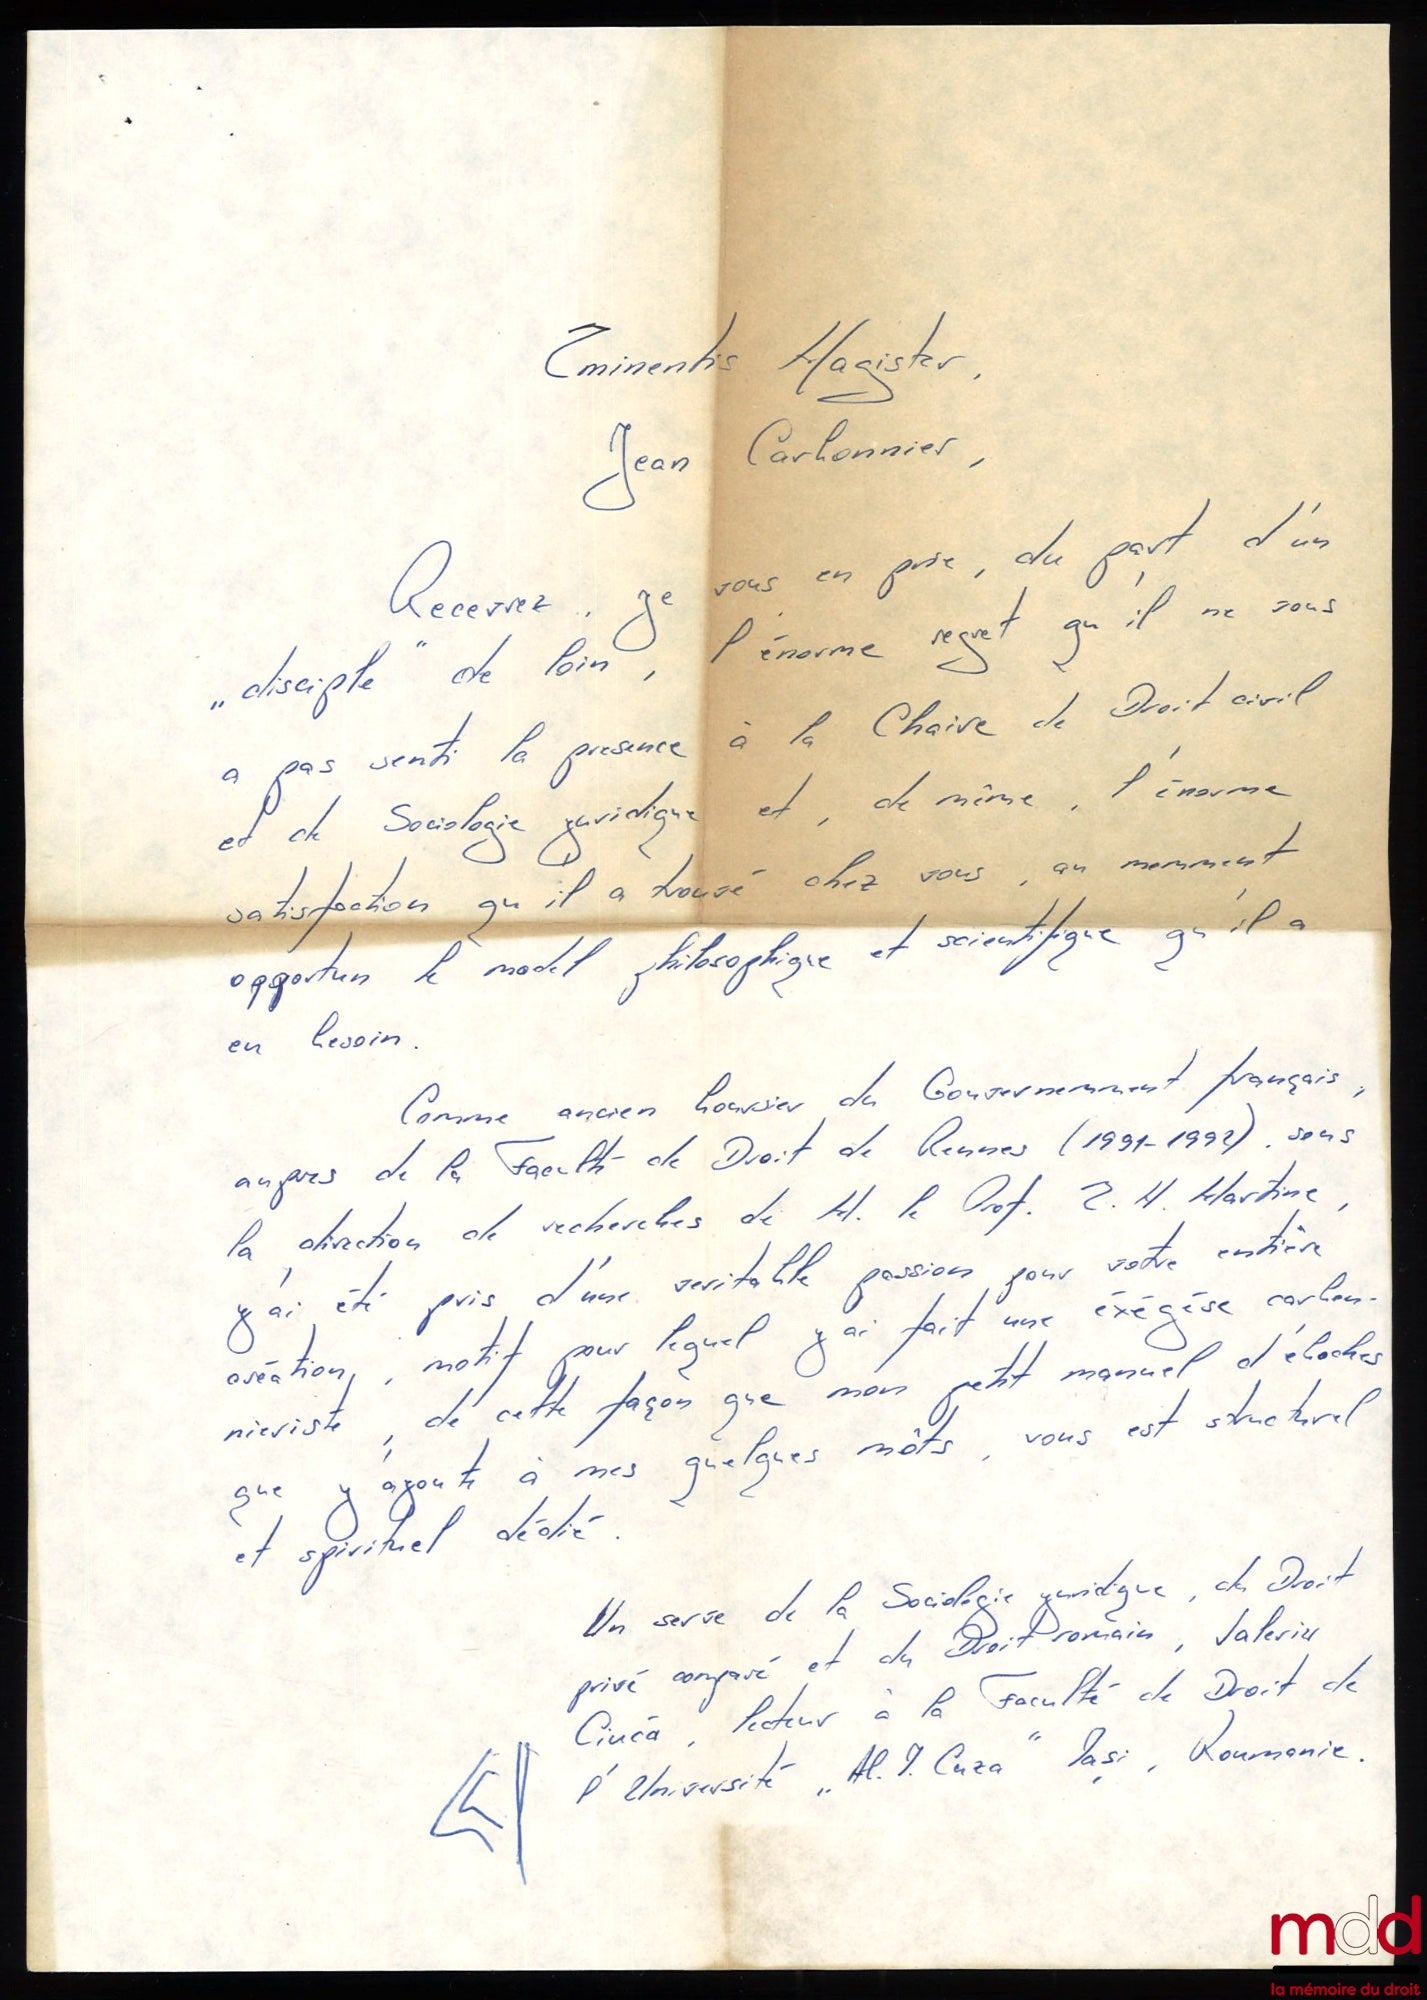 Eminentis Magister,
Jean Carbonnier,
Recevez, je vous en prie, du part d'un
„disciple" de loin, l'énorme regret qu'il ne vous
a pas senti la presence à la Chaire de Droit civil
et de Sociologie juridique et, de même, l'énorme
satisfaction qu'il a trouvé chez vous, au momment
opportun le model philosophique et scientifique qu'il a
en besoin.
Comme ancien boursier du Gouvernemment français,
aupres de la Faculté de Droit de Rennes (1991-1992), sous
la direction de recherches de M. le Prof. E. H. Martine,
j'ai été pris d'une veritable passion pour votre entière
création, motif pour lequel j'ai fait une éxégèse carbon-
nieriste, de cette façon que mon petit manuel d'
que j'ajoute à mes quelques môts, vous est structurel
et spirituel dédié.
Un serve de la Sociologie juridique, du Droit
privé comparé et du Droit romain, Valeriu
Ciucă, lecteur à la Faculté de Droit de
l'Université „Al. I. Cuza" Iași, Roumanie.
mdd
la mémoire du droit